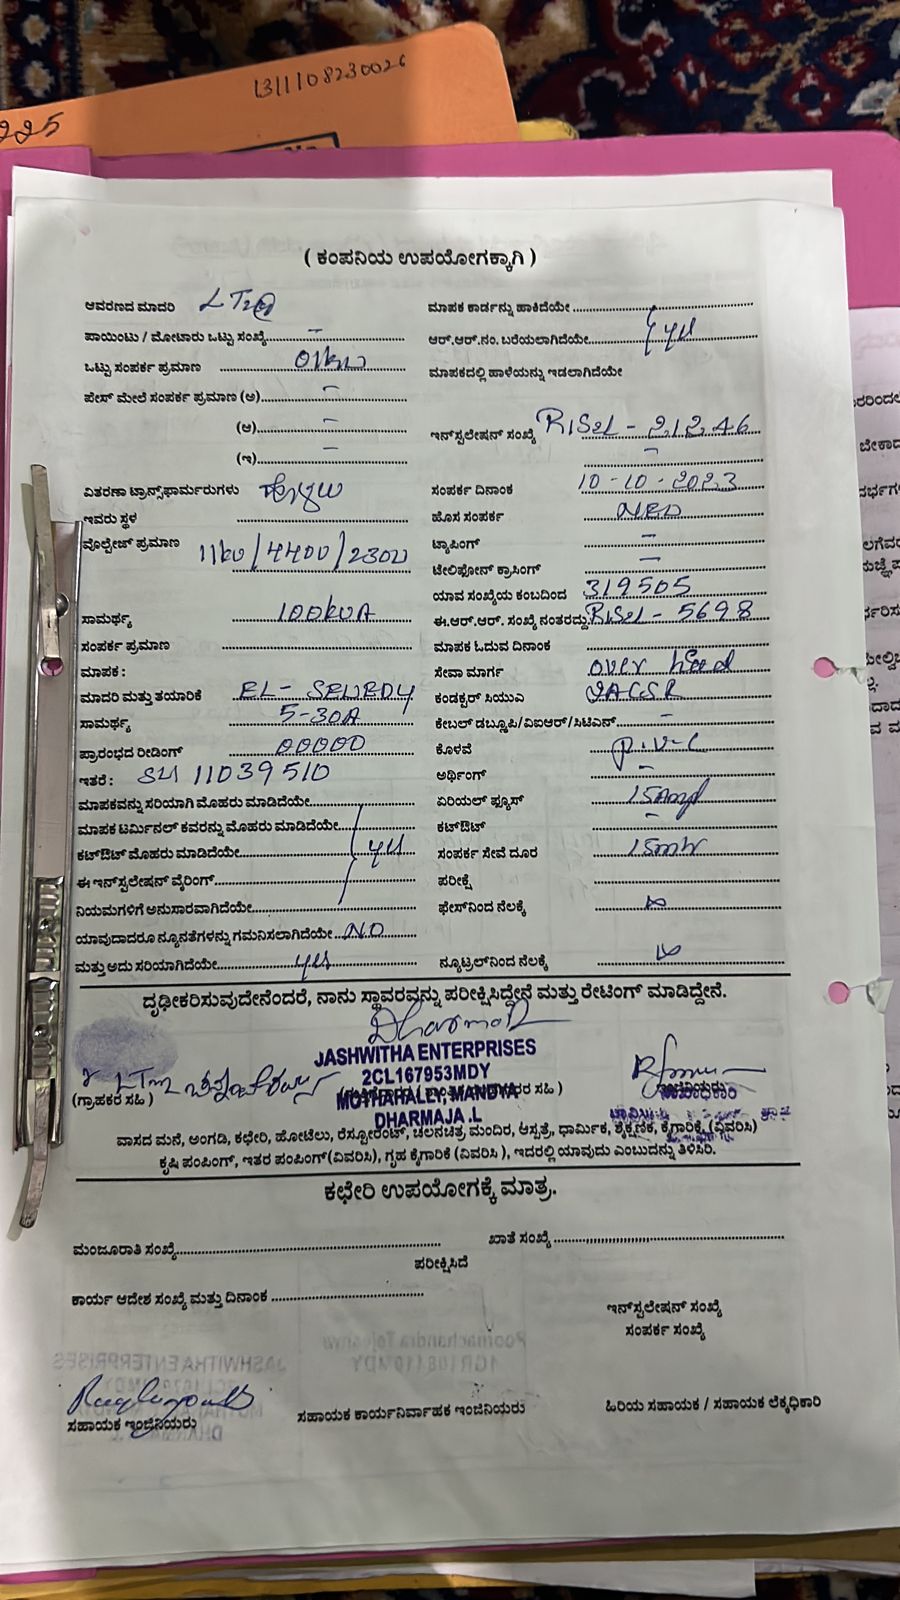 1311108230026
225
( ಕಂಪನಿಯ ಉಪಯೋಗಕ್ಕಾಗಿ )
ಆವರಣದ ಮಾದರಿ LT2
ಮಾಪಕ ಕಾರ್ಡನ್ನು ಹಾಕಿದೆಯೇ
ಪಾಯಿಂಟು / ಮೋಟಾರು ಒಟ್ಟು ಸಂಖ್ಯೆ –
ಆರ್.ಆರ್.ನಂ. ಬರೆಯಲಾಗಿದೆಯೇ yes
ಒಟ್ಟು ಸಂಪರ್ಕ ಪ್ರಮಾಣ 01kw
ಮಾಪಕದಲ್ಲಿ ಹಾಳೆಯನ್ನು ಇಡಲಾಗಿದೆಯೇ
ಪೇಸ್ ಮೇಲೆ ಸಂಪರ್ಕ ಪ್ರಮಾಣ (ಅ) –
(ಆ) –
ಇನ್‌ಸ್ಟಲೇಷನ್ ಸಂಖ್ಯೆ RISEL - 21246
(ಇ) –
–
ವಿತರಣಾ ಟ್ರಾನ್ಸ್‌ಫಾರ್ಮರುಗಳು
ಸಂಪರ್ಕ ದಿನಾಂಕ 10-10-2023
ಇವರು ಸ್ಥಳ
ಹೊಸ ಸಂಪರ್ಕ
ವೊಲ್ಟೇಜ್ ಪ್ರಮಾಣ 11kv/4400/230v
ಟ್ಯಾಪಿಂಗ್ –
ಟೆಲಿಫೋನ್ ಕ್ರಾಸಿಂಗ್ –
ಯಾವ ಸಂಖ್ಯೆಯ ಕಂಬದಿಂದ 319505
ಸಾಮರ್ಥ್ಯ 100kVA
ಈ.ಆರ್.ಆರ್. ಸಂಖ್ಯೆ ನಂತರದ್ದು RISEL - 5698
ಸಂಪರ್ಕ ಪ್ರಮಾಣ
ಮಾಪಕ ಓದುವ ದಿನಾಂಕ
ಮಾಪಕ :
ಸೇವಾ ಮಾರ್ಗ over head
ಮಾದರಿ ಮತ್ತು ತಯಾರಿಕೆ EL- SEWEDY
ಕಂಡಕ್ಟರ್ ಸಿಯುವಿ 2ACSR
ಸಾಮರ್ಥ್ಯ 5-30A
ಕೇಬಲ್ ಡಬ್ಲೂಪಿ/ವಿಐಆರ್/ಸಿಟಿಎನ್ –
ಪ್ರಾರಂಭದ ರೀಡಿಂಗ್ 00000
ಕೊಳವೆ P.V.C
ಇತರೆ : 11039510
ಅರ್ಥಿಂಗ್ –
ಮಾಪಕವನ್ನು ಸರಿಯಾಗಿ ಮೊಹರು ಮಾಡಿದೆಯೇ
ಏರಿಯಲ್ ಫ್ಯೂಸ್ 15Amp
ಮಾಪಕ ಟರ್ಮಿನಲ್ ಕವರನ್ನು ಮೊಹರು ಮಾಡಿದೆಯೇ
ಕಟ್ಔಟ್ –
ಕಟ್ಔಟ್ ಮೊಹರು ಮಾಡಿದೆಯೇ yes
ಸಂಪರ್ಕ ಸೇವೆ ದೂರ 15mtr
ಈ ಇನ್‌ಸ್ಟಲೇಷನ್ ವೈರಿಂಗ್
ಪರೀಕ್ಷೆ
ನಿಯಮಗಳಿಗೆ ಅನುಸಾರವಾಗಿದೆಯೇ
ಫೇಸ್‌ನಿಂದ ನೆಲಕ್ಕೆ ∞
ಯಾವುದಾದರೂ ನ್ಯೂನತೆಗಳನ್ನು ಗಮನಿಸಲಾಗಿದೆಯೇ NO
ಮತ್ತು ಅದು ಸರಿಯಾಗಿದೆಯೇ yes
ನ್ಯೂಟ್ರಲ್‌ನಿಂದ ನೆಲಕ್ಕೆ ∞
ದೃಢೀಕರಿಸುವುದೇನೆಂದರೆ, ನಾನು ಸ್ಥಾವರವನ್ನು ಪರೀಕ್ಷಿಸಿದ್ದೇನೆ ಮತ್ತು ರೇಟಿಂಗ್ ಮಾಡಿದ್ದೇನೆ.
JASHWITHA ENTERPRISES
2CL167953MDY
MOTHAHALLY, MANDYA
DHARMAJA .L
(ಗ್ರಾಹಕರ ಸಹಿ )
ವಾಸದ ಮನೆ, ಅಂಗಡಿ, ಕಛೇರಿ, ಹೋಟೆಲು, ರೆಸ್ಟೋರೆಂಟ್, ಚಲನಚಿತ್ರ ಮಂದಿರ, ಆಸ್ಪತ್ರೆ, ಧಾರ್ಮಿಕ, ಶೈಕ್ಷಣಿಕ, ಕೈಗಾರಿಕೆ, (ವಿವರಿಸಿ)
ಕೃಷಿ ಪಂಪಿಂಗ್, ಇತರ ಪಂಪಿಂಗ್(ವಿವರಿಸಿ), ಗೃಹ ಕೈಗಾರಿಕೆ (ವಿವರಿಸಿ ), ಇದರಲ್ಲಿ ಯಾವುದು ಎಂಬುದನ್ನು ತಿಳಿಸಿರಿ.
ಕಛೇರಿ ಉಪಯೋಗಕ್ಕೆ ಮಾತ್ರ.
ಮಂಜೂರಾತಿ ಸಂಖ್ಯೆ
ಖಾತೆ ಸಂಖ್ಯೆ
ಪರೀಕ್ಷಿಸಿದೆ
ಕಾರ್ಯ ಆದೇಶ ಸಂಖ್ಯೆ ಮತ್ತು ದಿನಾಂಕ
ಇನ್‌ಸ್ಟಲೇಷನ್ ಸಂಖ್ಯೆ
ಸಂಪರ್ಕ ಸಂಖ್ಯೆ
ಸಹಾಯಕ ಇಂಜಿನಿಯರು
ಸಹಾಯಕ ಕಾರ್ಯನಿರ್ವಾಹಕ ಇಂಜಿನಿಯರು
ಹಿರಿಯ ಸಹಾಯಕ / ಸಹಾಯಕ ಲೆಕ್ಕಧಿಕಾರಿ